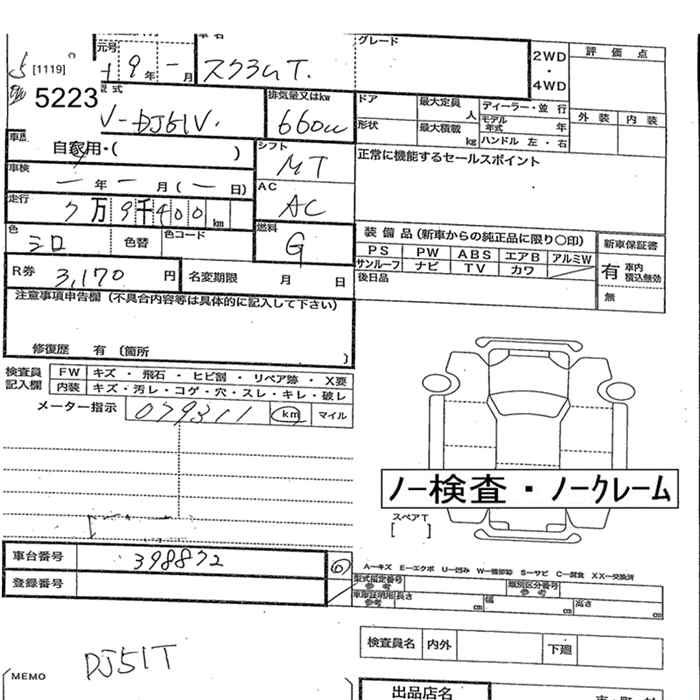 車名 グレード
[1119] 元号 H 9 年 ー 月 スクラム T. 2WD ・ 4WD 評 価 点
5223 型式 V-DJ51V. 排気量又はkw 660cc ドア 最大定員 人 ディーラー・並 行 外 装 内 装
形状 最大積載 kg モデル年式 年 ハンドル 左 ・ 右
車歴 自家用・( ) シフト MT 正常に機能するセールスポイント
車検 ー 年 ー 月 (ー 日) AC AC
走行 7万9千400 km 燃料 G
色 シロ 色替 色コード 装 備 品 (新車からの純正品に限り○印) 新車保証書
PS PW ABS エアB アルミW 有 車内積込無効
サンルーフ ナビ TV カワ
R券 3,170 円 名変期限 月 日 後日品 無
注意事項申告欄 (不具合内容等は具体的に記入して下さい)
修復歴 有 〔箇所 〕
検査員記入欄 FW キズ ・ 飛石 ・ ヒビ割 ・ リペア跡 ・ X要
内装 キズ・汚レ・コゲ・穴・スレ・キレ・破レ
メーター指示 079311 km マイル
ノー検査・ノークレーム
スペアT
[ ]
車台番号 398872
A-キズ E-エクボ U-凹み W-補修跡 S-サビ C-腐食 XX-交換済
登録番号 型式指定番号 参 考 類別区分番号 参 考
車庫証明用 参考 長さ cm 幅 cm 高さ cm
検査員名 内外 下廻
DJ51T
MEMO
出品店名